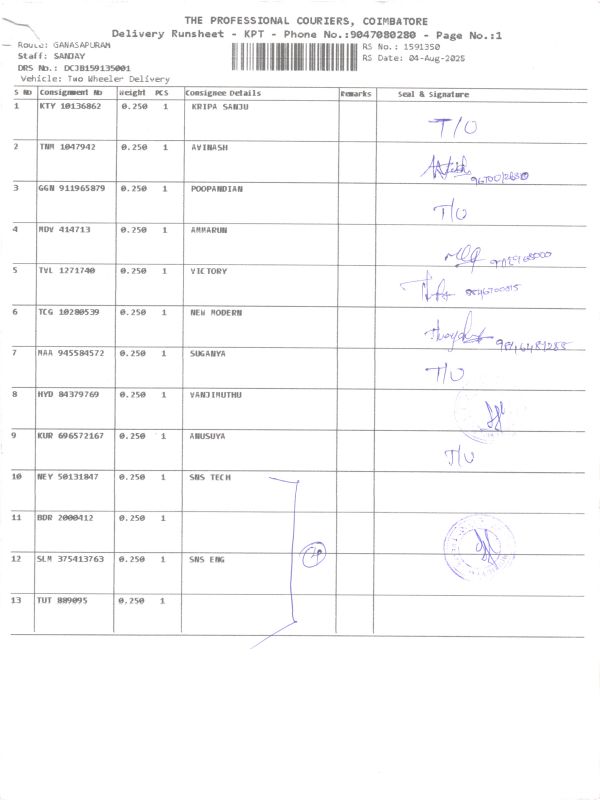 THE PROFESSIONAL COURIERS, COIMBATORE
Delivery Runsheet - KPT - Phone No.:9047080280 - Page No.:1
Route: GANASAPURAM
RS No.: 1591350
Staff: SANJAY
RS Date: 04-Aug-2025
DRS No.: DCJB159135001
Vehicle: Two Wheeler Delivery
S No Consignment No Weight PCS Consignee Details Remarks Seal & Signature
1 KTY 10136862 0.250 1 KRIPA SANJU T/O
2 TNM 1047942 0.250 1 AVINASH
3 GGN 911965879 0.250 1 POOPANDIAN T/O
4 MDV 414713 0.250 1 AMMARUN
5 TVL 1271740 0.250 1 VICTORY
6 TCG 10280539 0.250 1 NEW MODERN
7 MAA 945584572 0.250 1 SUGANYA T/O
8 HYD 84379769 0.250 1 VANJIMUTHU
9 KUR 696572167 0.250 1 ANUSUYA T/O
10 NEY 50131847 0.250 1 SNS TECH
11 BDR 2000412 0.250 1
12 SLM 375413763 0.250 1 SNS ENG
13 TUT 889095 0.250 1